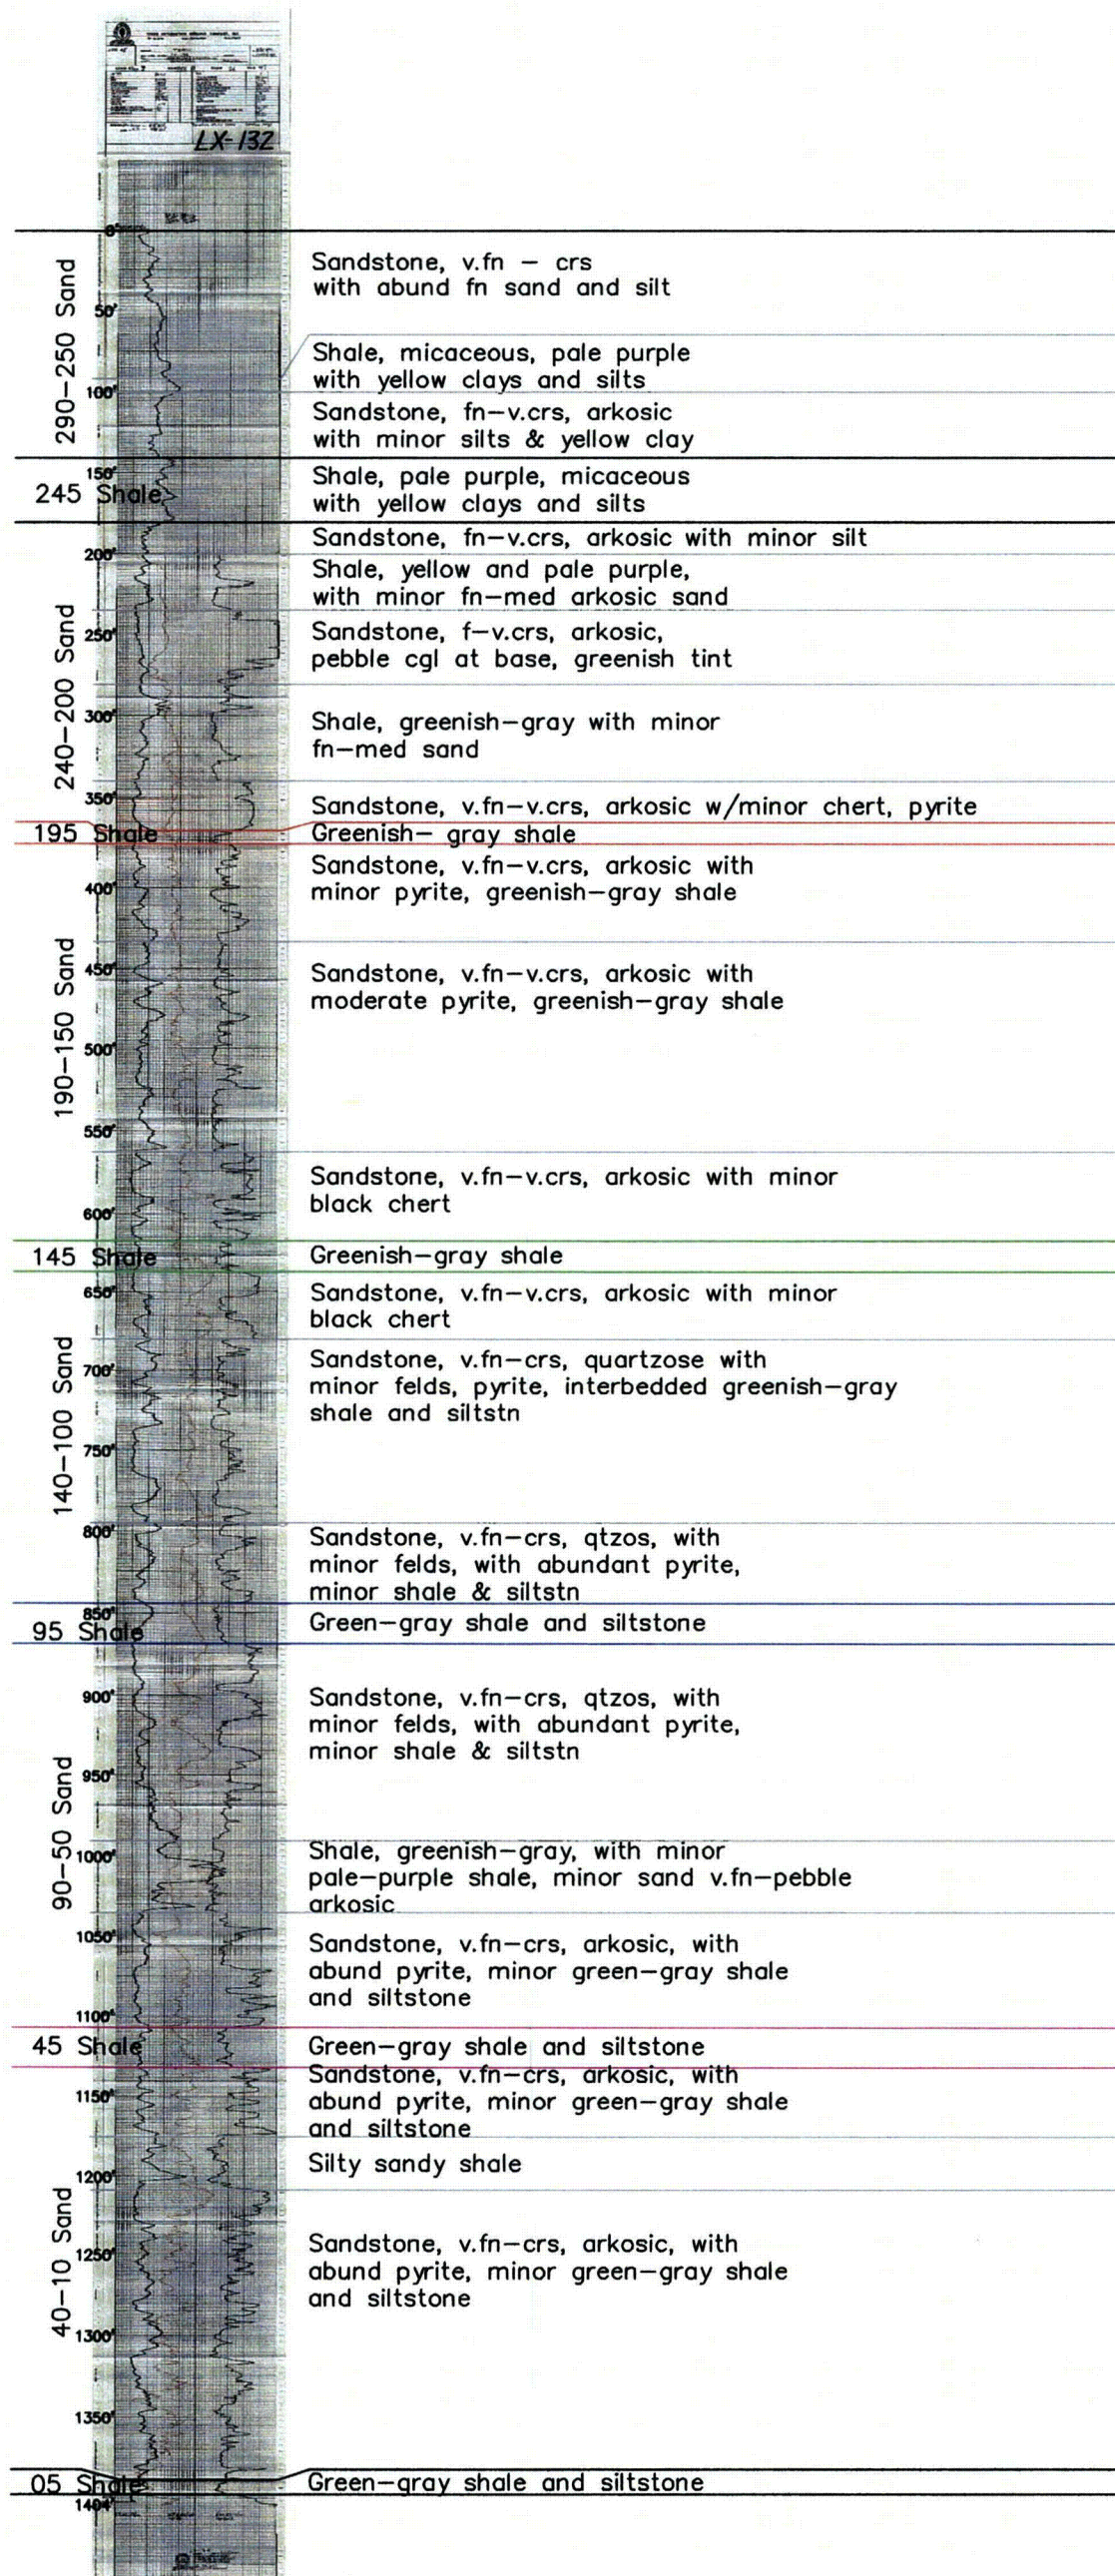 LX-132
0'
Sandstone, v.fn – crs
with abund fn sand and silt
290–250 Sand
50'
Shale, micaceous, pale purple
with yellow clays and silts
100'
Sandstone, fn–v.crs, arkosic
with minor silts & yellow clay
150'
245 Shale
Shale, pale purple, micaceous
with yellow clays and silts
Sandstone, fn–v.crs, arkosic with minor silt
200'
Shale, yellow and pale purple,
with minor fn–med arkosic sand
240–200 Sand
250'
Sandstone, f–v.crs, arkosic,
pebble cgl at base, greenish tint
300'
Shale, greenish–gray with minor
fn–med sand
350'
Sandstone, v.fn–v.crs, arkosic w/minor chert, pyrite
195 Shale
Greenish– gray shale
Sandstone, v.fn–v.crs, arkosic with
minor pyrite, greenish–gray shale
400'
190–150 Sand
450'
Sandstone, v.fn–v.crs, arkosic with
moderate pyrite, greenish–gray shale
500'
550'
Sandstone, v.fn–v.crs, arkosic with minor
black chert
600'
145 Shale
Greenish–gray shale
650'
Sandstone, v.fn–v.crs, arkosic with minor
black chert
140–100 Sand
700'
Sandstone, v.fn–crs, quartzose with
minor felds, pyrite, interbedded greenish–gray
shale and siltstn
750'
800'
Sandstone, v.fn–crs, qtzos, with
minor felds, with abundant pyrite,
minor shale & siltstn
850'
95 Shale
Green–gray shale and siltstone
900'
Sandstone, v.fn–crs, qtzos, with
minor felds, with abundant pyrite,
minor shale & siltstn
90–50 Sand
950'
1000'
Shale, greenish–gray, with minor
pale–purple shale, minor sand v.fn–pebble
arkosic
1050'
Sandstone, v.fn–crs, arkosic, with
abund pyrite, minor green–gray shale
and siltstone
1100'
45 Shale
Green–gray shale and siltstone
1150'
Sandstone, v.fn–crs, arkosic, with
abund pyrite, minor green–gray shale
and siltstone
1200'
Silty sandy shale
40–10 Sand
1250'
Sandstone, v.fn–crs, arkosic, with
abund pyrite, minor green–gray shale
and siltstone
1300'
1350'
05 Shale
Green–gray shale and siltstone
1404'